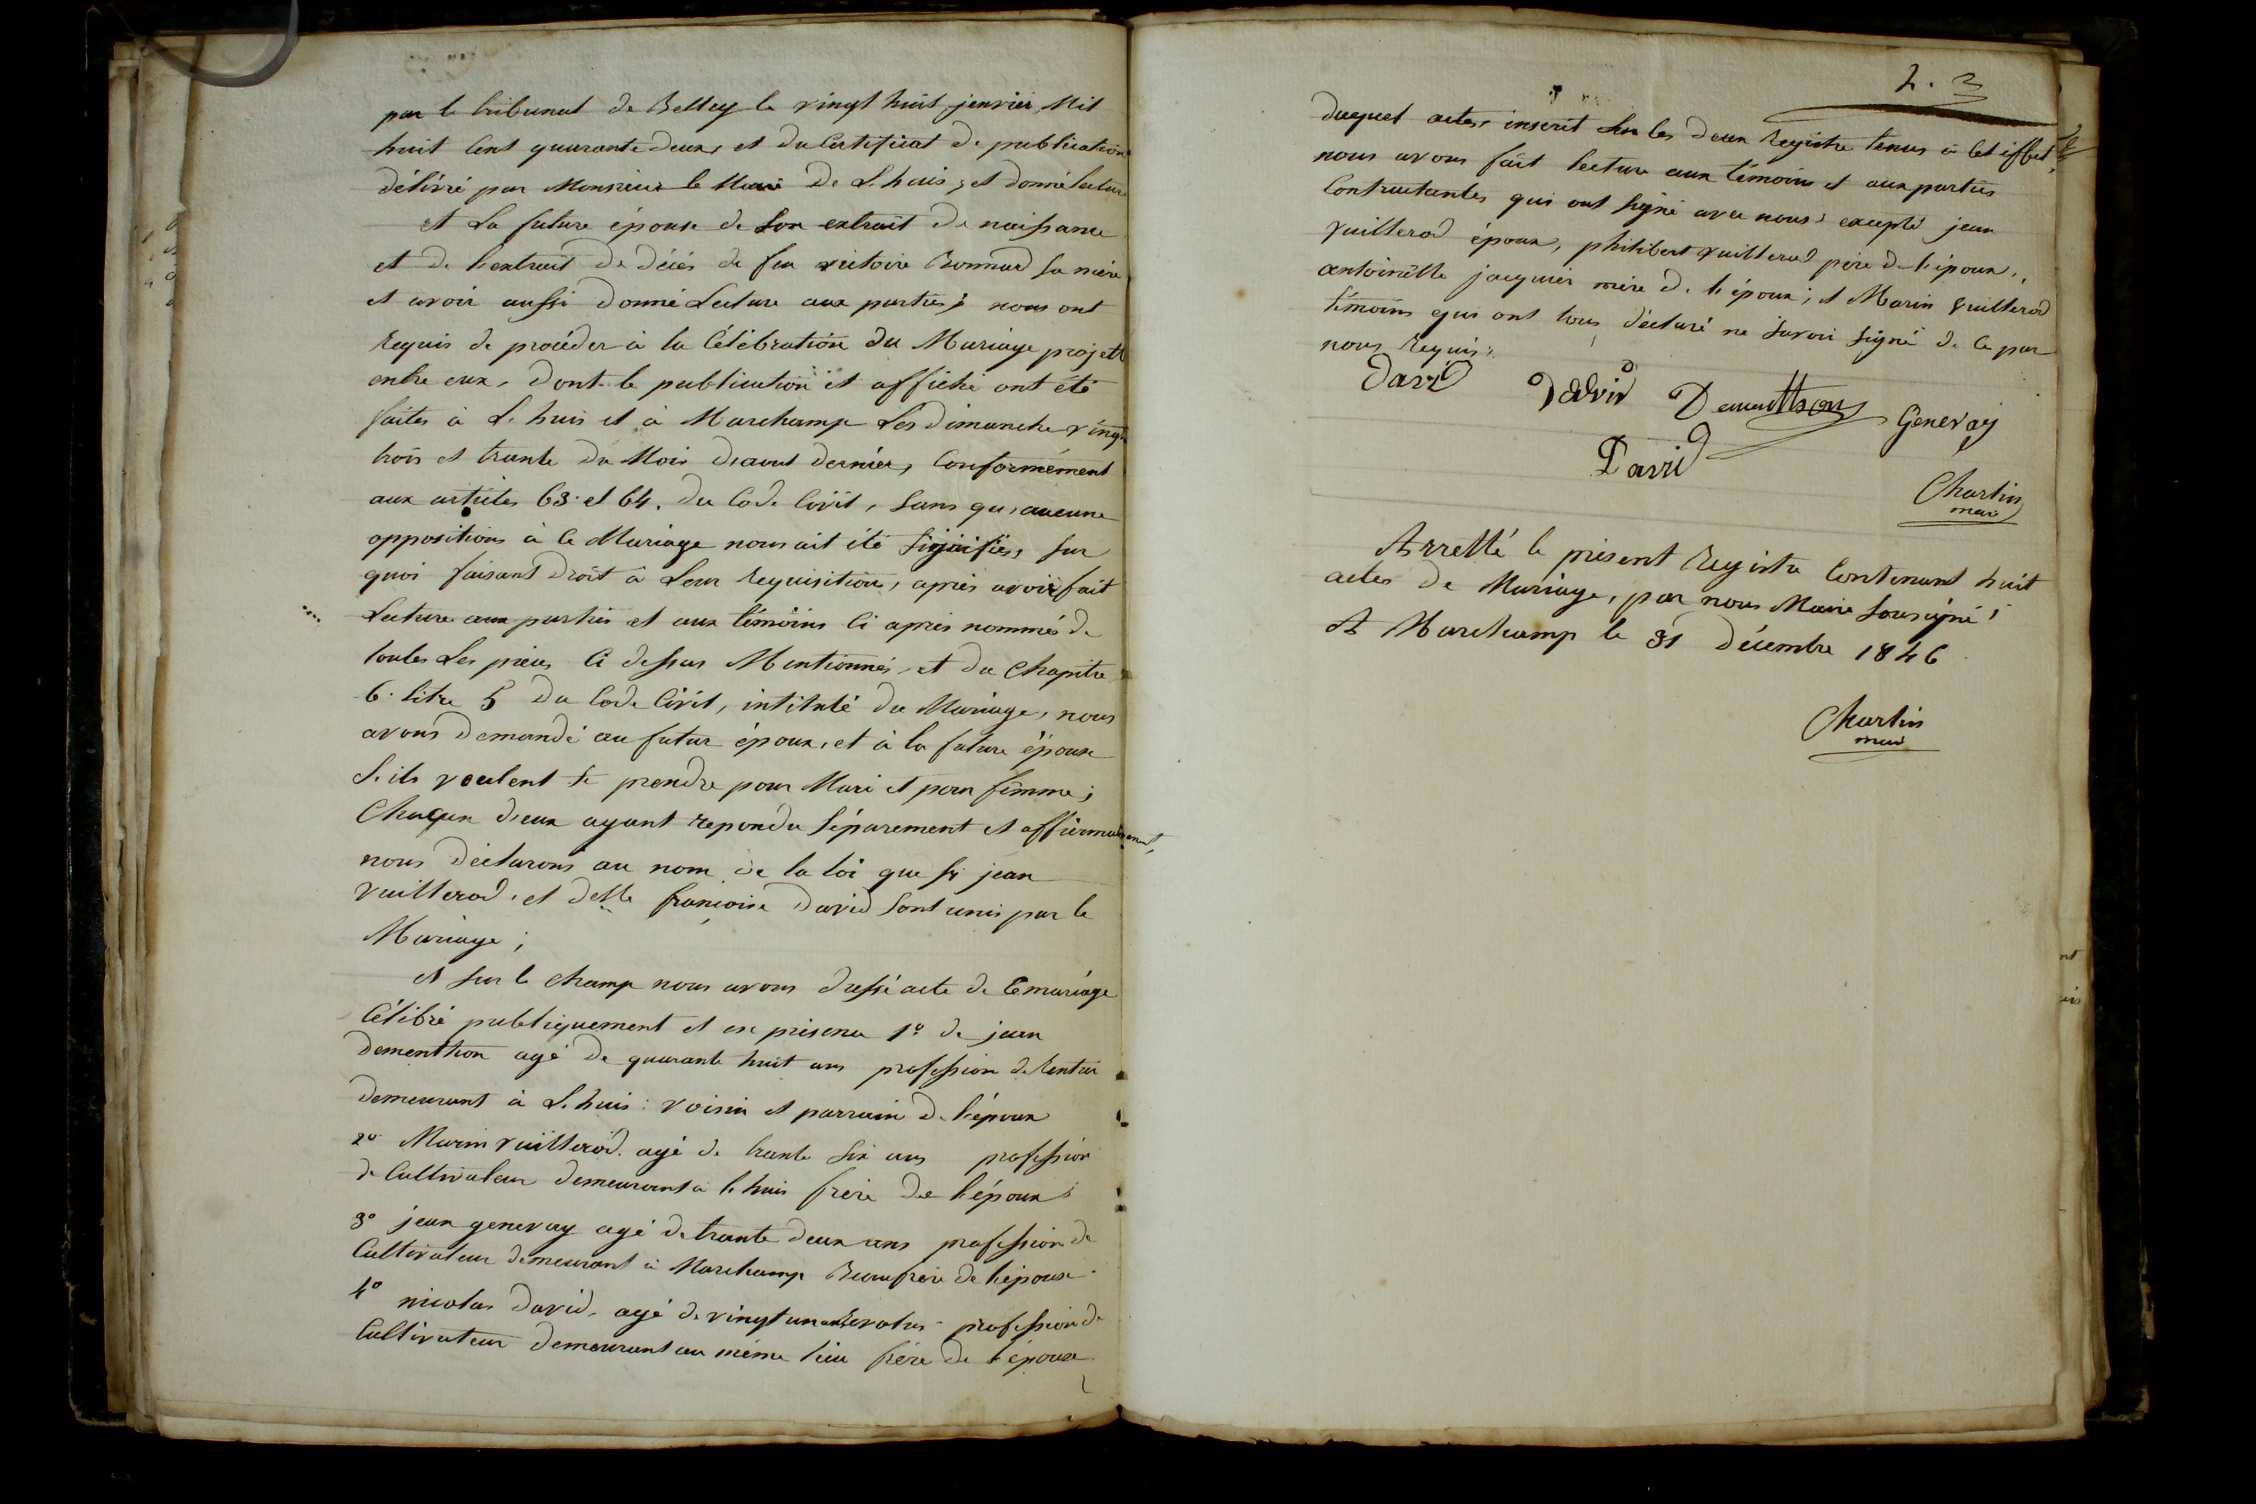 par le tribunal de Belley le vingt huit janvier Mil
huit Cent quarante deux, et du Certificat de publication
délivré par Monsieur le Maire De L.huis, et donné lecture
et La future épouse de Son extrait De naissance
et de l'extrait De décès de feu victoire Bonnard sa mère
et avoir aussi Donné Lecture aux parties; nous ont
Requis de procéder à la Célébration du Mariage projetté
entre eux, Dont le publication et affiche ont été
faites à L.huis et à Marchamp Les Dimanche vingt
trois et trante Du Mois D'aout dernier, Conformément
aux articles 63. et 64. Du Code Civil, Sans qu'aucune
oppositions à Ce Mariage nous ait été Signifiés, sur
quoi faisant Droit à Leur Requisition, après avoir fait
Lecture aux parties et aux témoins Ci après nommés de
toutes Les pièces Ci dessus Mentionnés, et Du Chapitre
6. titre 5 Du Code Civil, intitulé Du Mariage, nous
avons Demandé au futur époux, et à la future épouse
S.ils veulent se prendre pour Mari et pour femme;
Chaqun d'eux ayant repondu Séparement et affirmativement,
nous Déclarons au nom de la loi que sr jean
vuillerod, et delle françoise David Sont unis par le
Mariage;
et sur le champ nous avons dressé acte de Ce mariage
Célébré publiquement et en présence 1° de jean
dementhon agé De quarante huit ans profession de Rentier
demeurant à L.huis: voisin et parrain De l'époux
2° Marin vuillerod. agé de trante Six ans profession
de Cultivateur Demeurant à l.huis frère De l'époux
3° jean genevay agé de trante deux ans profession de
Cultivateur demeurant à Marchamp Beaufrère De l'épouse.
4° nicolas David, agé de vingt un ans Revolus profession de
Cultivateur Demeurant au même lieu frère De l'épouse
2. 3
Duquel actes, inscrit Sur les Deux Registre tenus à Cet effet,
nous avons fait lecture aux témoins et aux parties
Contractantes qui ont signé avec nous excepté jean
vuillerod époux, philibert vuillerod père De l'époux,
antoinette jacquier mère De l'époux; et Marin vuillerod
témoins qui ont tous déclaré ne Savoir Signé De Ce par
nous Requis.
David David Dementhon Genevay
David
Chartin
maire
Arretté le présent Registre Contenant huit
actes De Mariage, par nous Maire Sousigné,
A Marchamp le 31 Décembre 1846
Chartin
maire